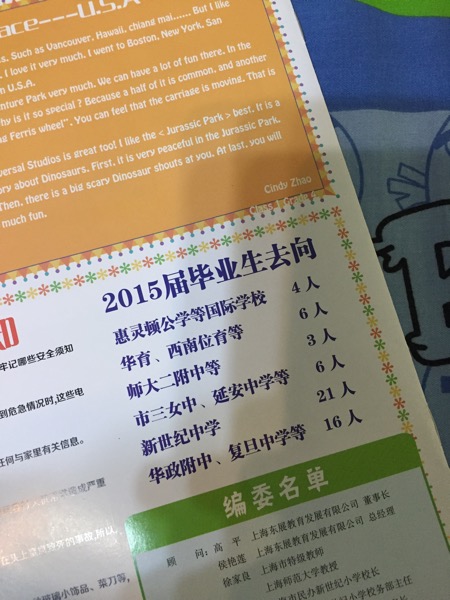 ace---U.S.A
s. Such as Vancouver, Hawaii, chiang mai...... But I like
. I love it very much. I went to Boston, New York, San
n U.S.A.
enture Park very much. We can have a lot of fun there. In the
hy is it so special ? Because a half of it is common, and another
g Ferris wheel". You can feel that the carriage is moving. That is
versal Studios is great too! I like the < Jurassic Park > best. It is a
ory about Dinosaurs. First, it is very peaceful in the Jurassic Park.
Then, there is a big scary Dinosaur shouts at you. At last, you will
much fun.
Cindy Zhao
2015届毕业生去向
惠灵顿公学等国际学校 4人
华育、西南位育等 6人
师大二附中等 3人
市三女中、延安中学等 6人
新世纪中学 21人
华政附中、复旦中学等 16人
知
牢记哪些安全须知
到危急情况时,这些电
任何与家里有关信息。
成严重
的事故,所以,
玻璃小饰品、菜刀等,
编委名单
顾 问:高 平 上海东展教育发展有限公司 董事长
侯艳莲 上海东展教育发展有限公司 总经理
徐家良 上海市特级教师
上海师范大学教授
市民办新世纪小学校长
小学校务部主任